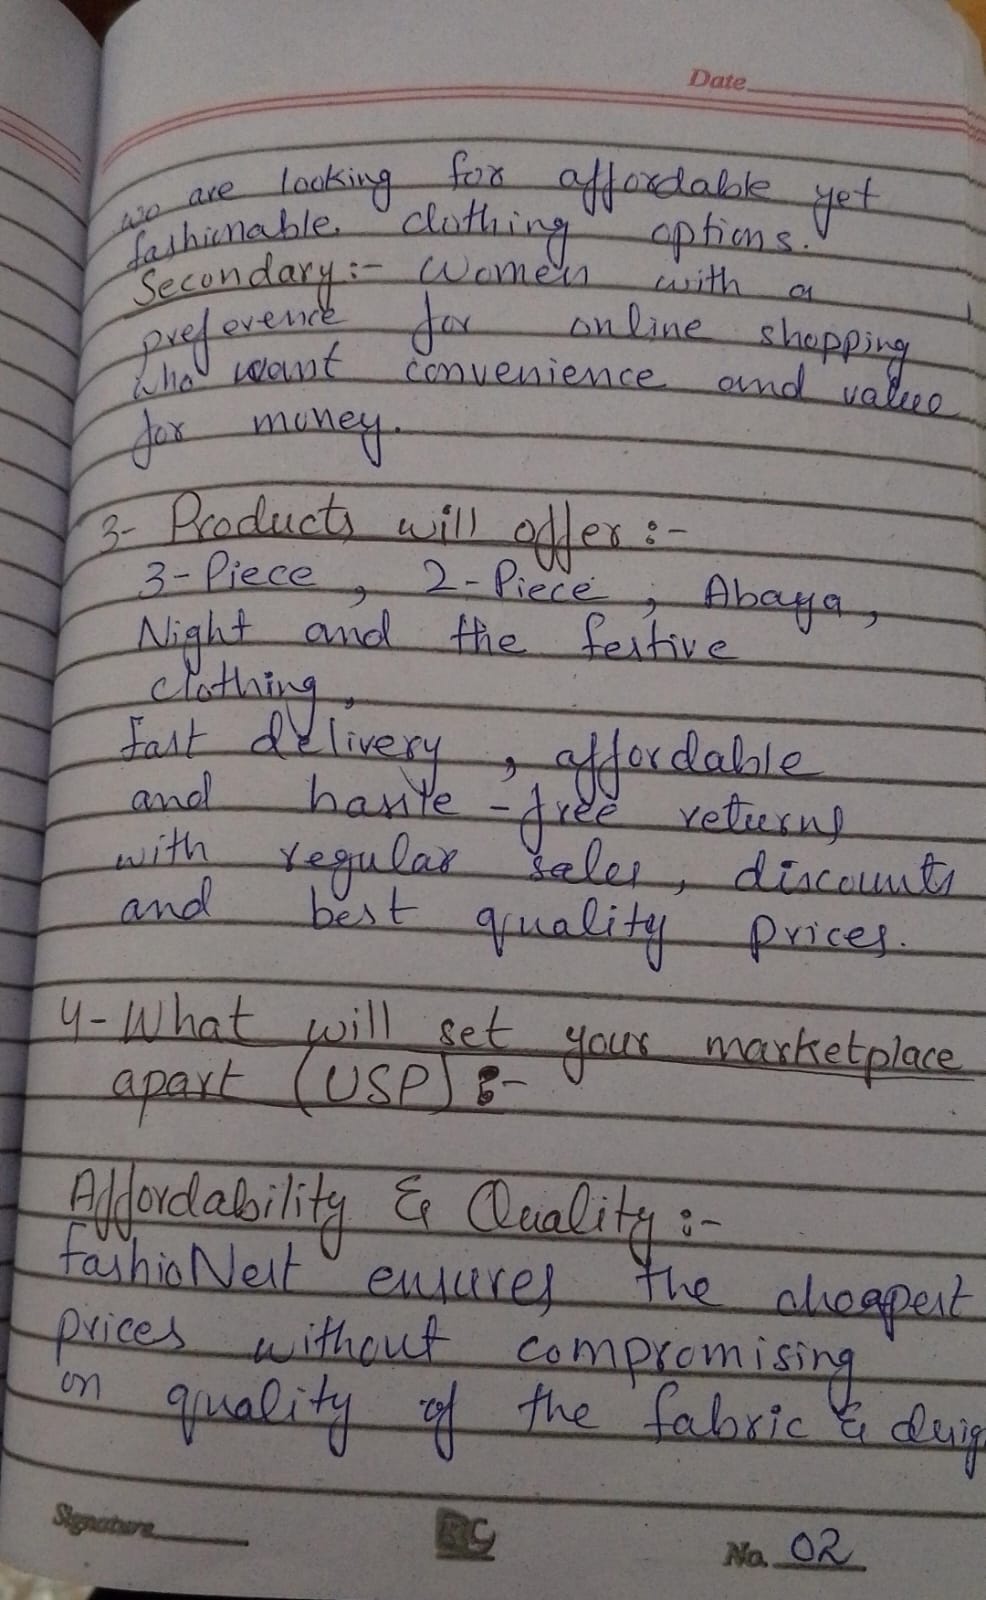 Date
we are looking for affordable yet
fashionable clothing options.
Secondary:- Women with a
preference for online shopping
who want convenience and value
for money.
3- Products will offer :-
3-Piece, 2-Piece, Abaya,
Night and the festive
clothing,
fast delivery, affordable
and hassle-free returns
with regular sales, discounts
and best quality prices.
4- What will set your marketplace
apart (USP) :-
Affordability & Quality :-
FashioNest ensures the cheapest
prices without compromising
on quality of the fabric &
Signature
No. 02